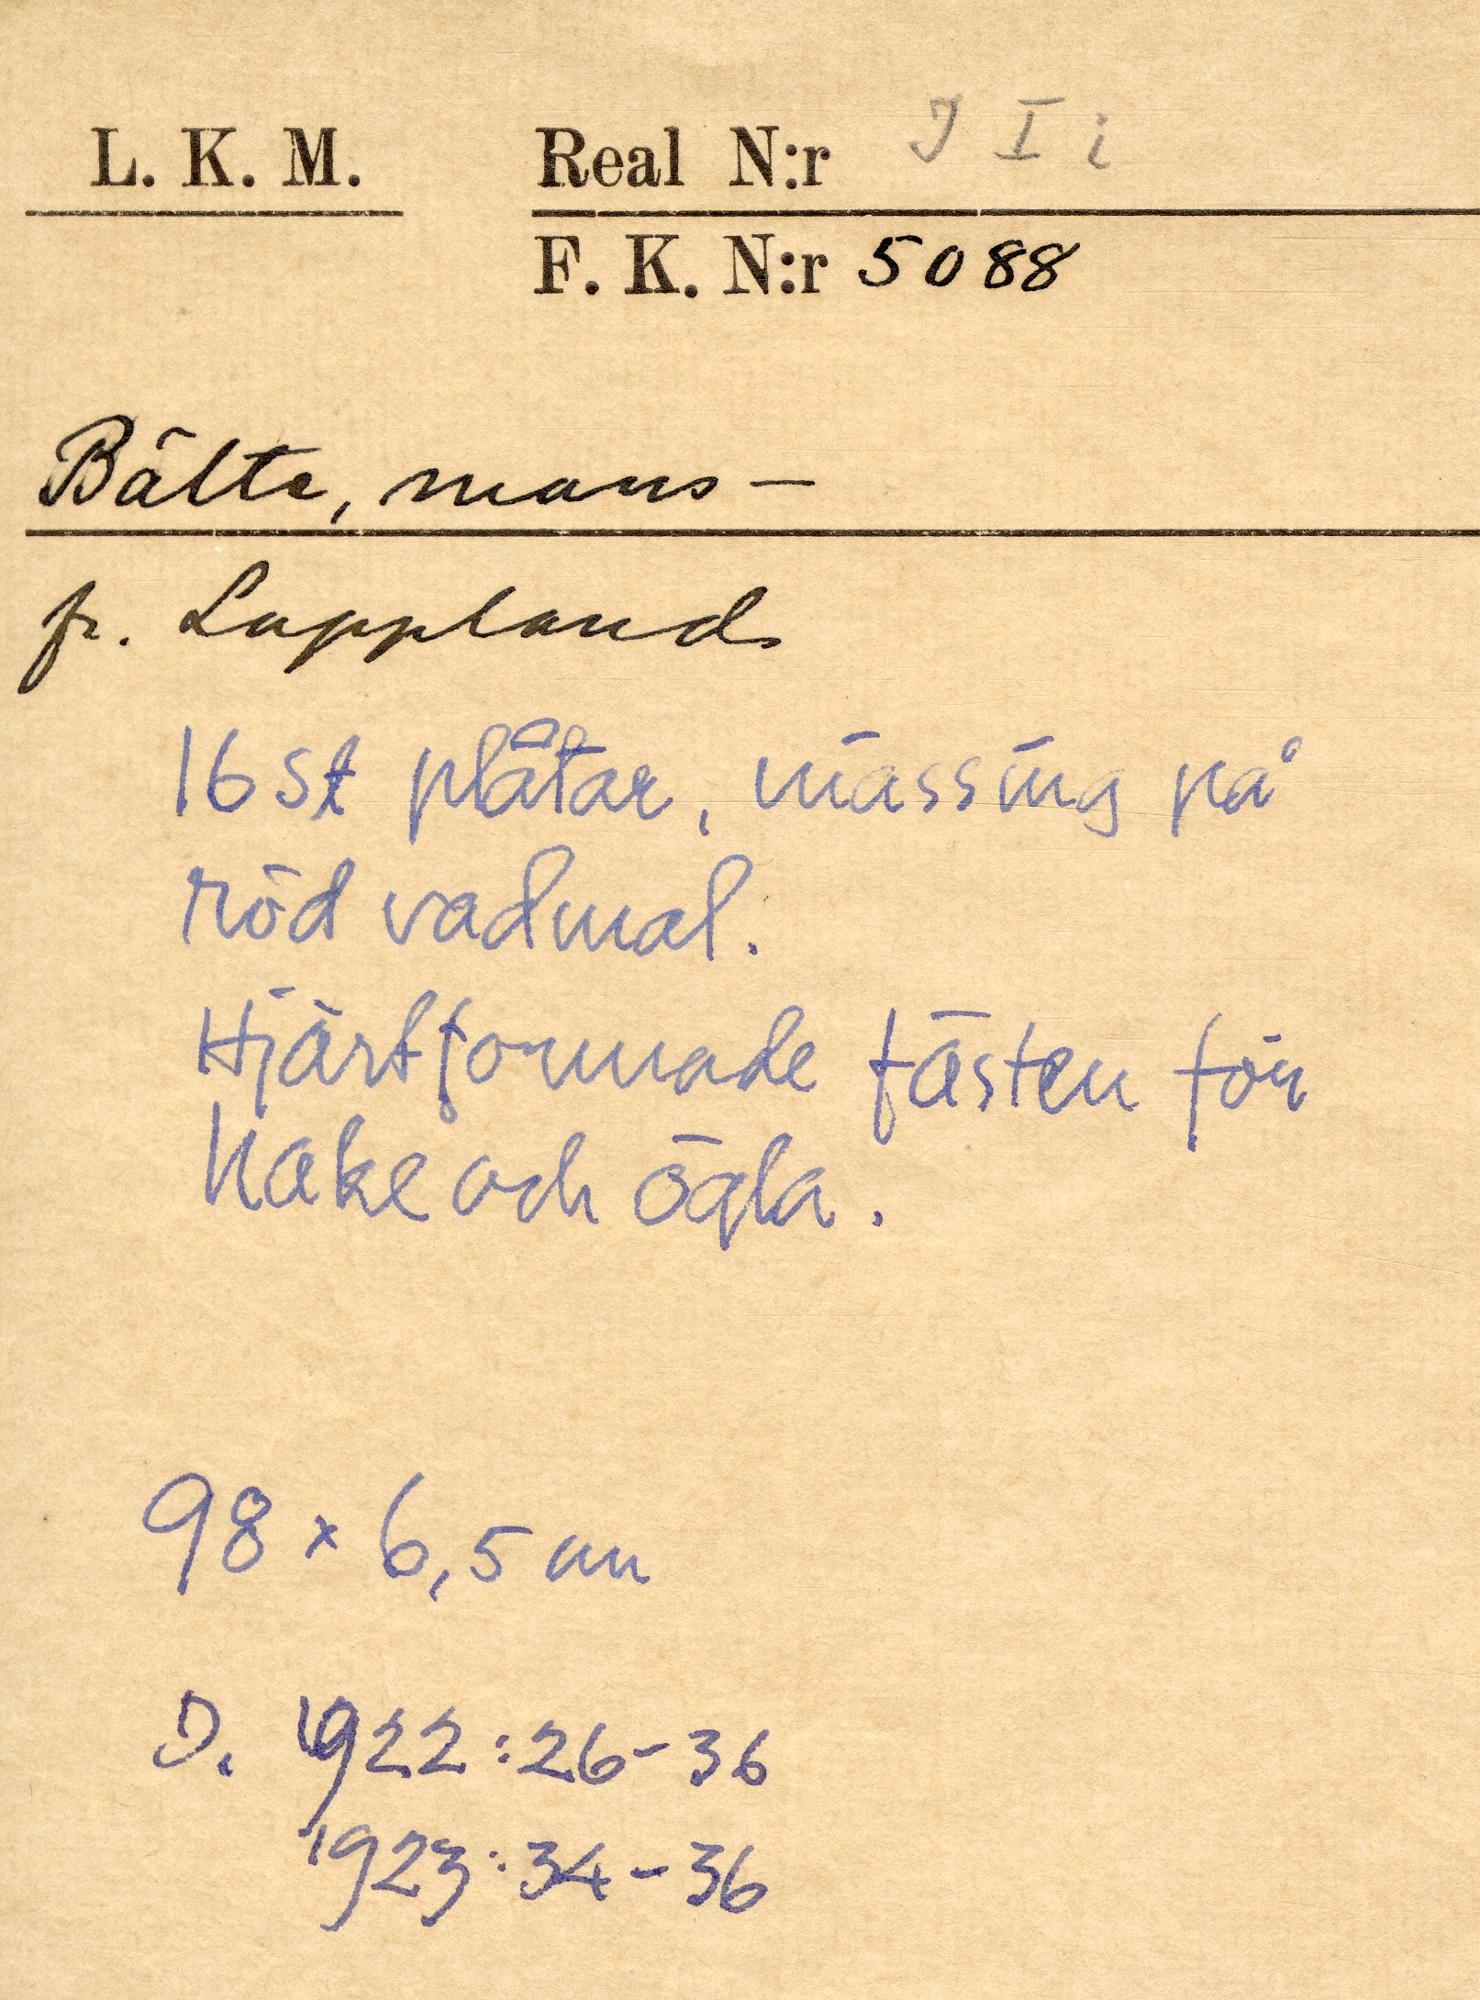 L. K. M. Real N:r J I i
F. K. N:r 5088
Bälte, mans-
fr. Lappland
16 st plåtar, mässing på
röd vadmal.
Hjärtformade fästen för
hake och ögla.
98 x 6,5 cm
D. 1922:26-36
1923:34-36